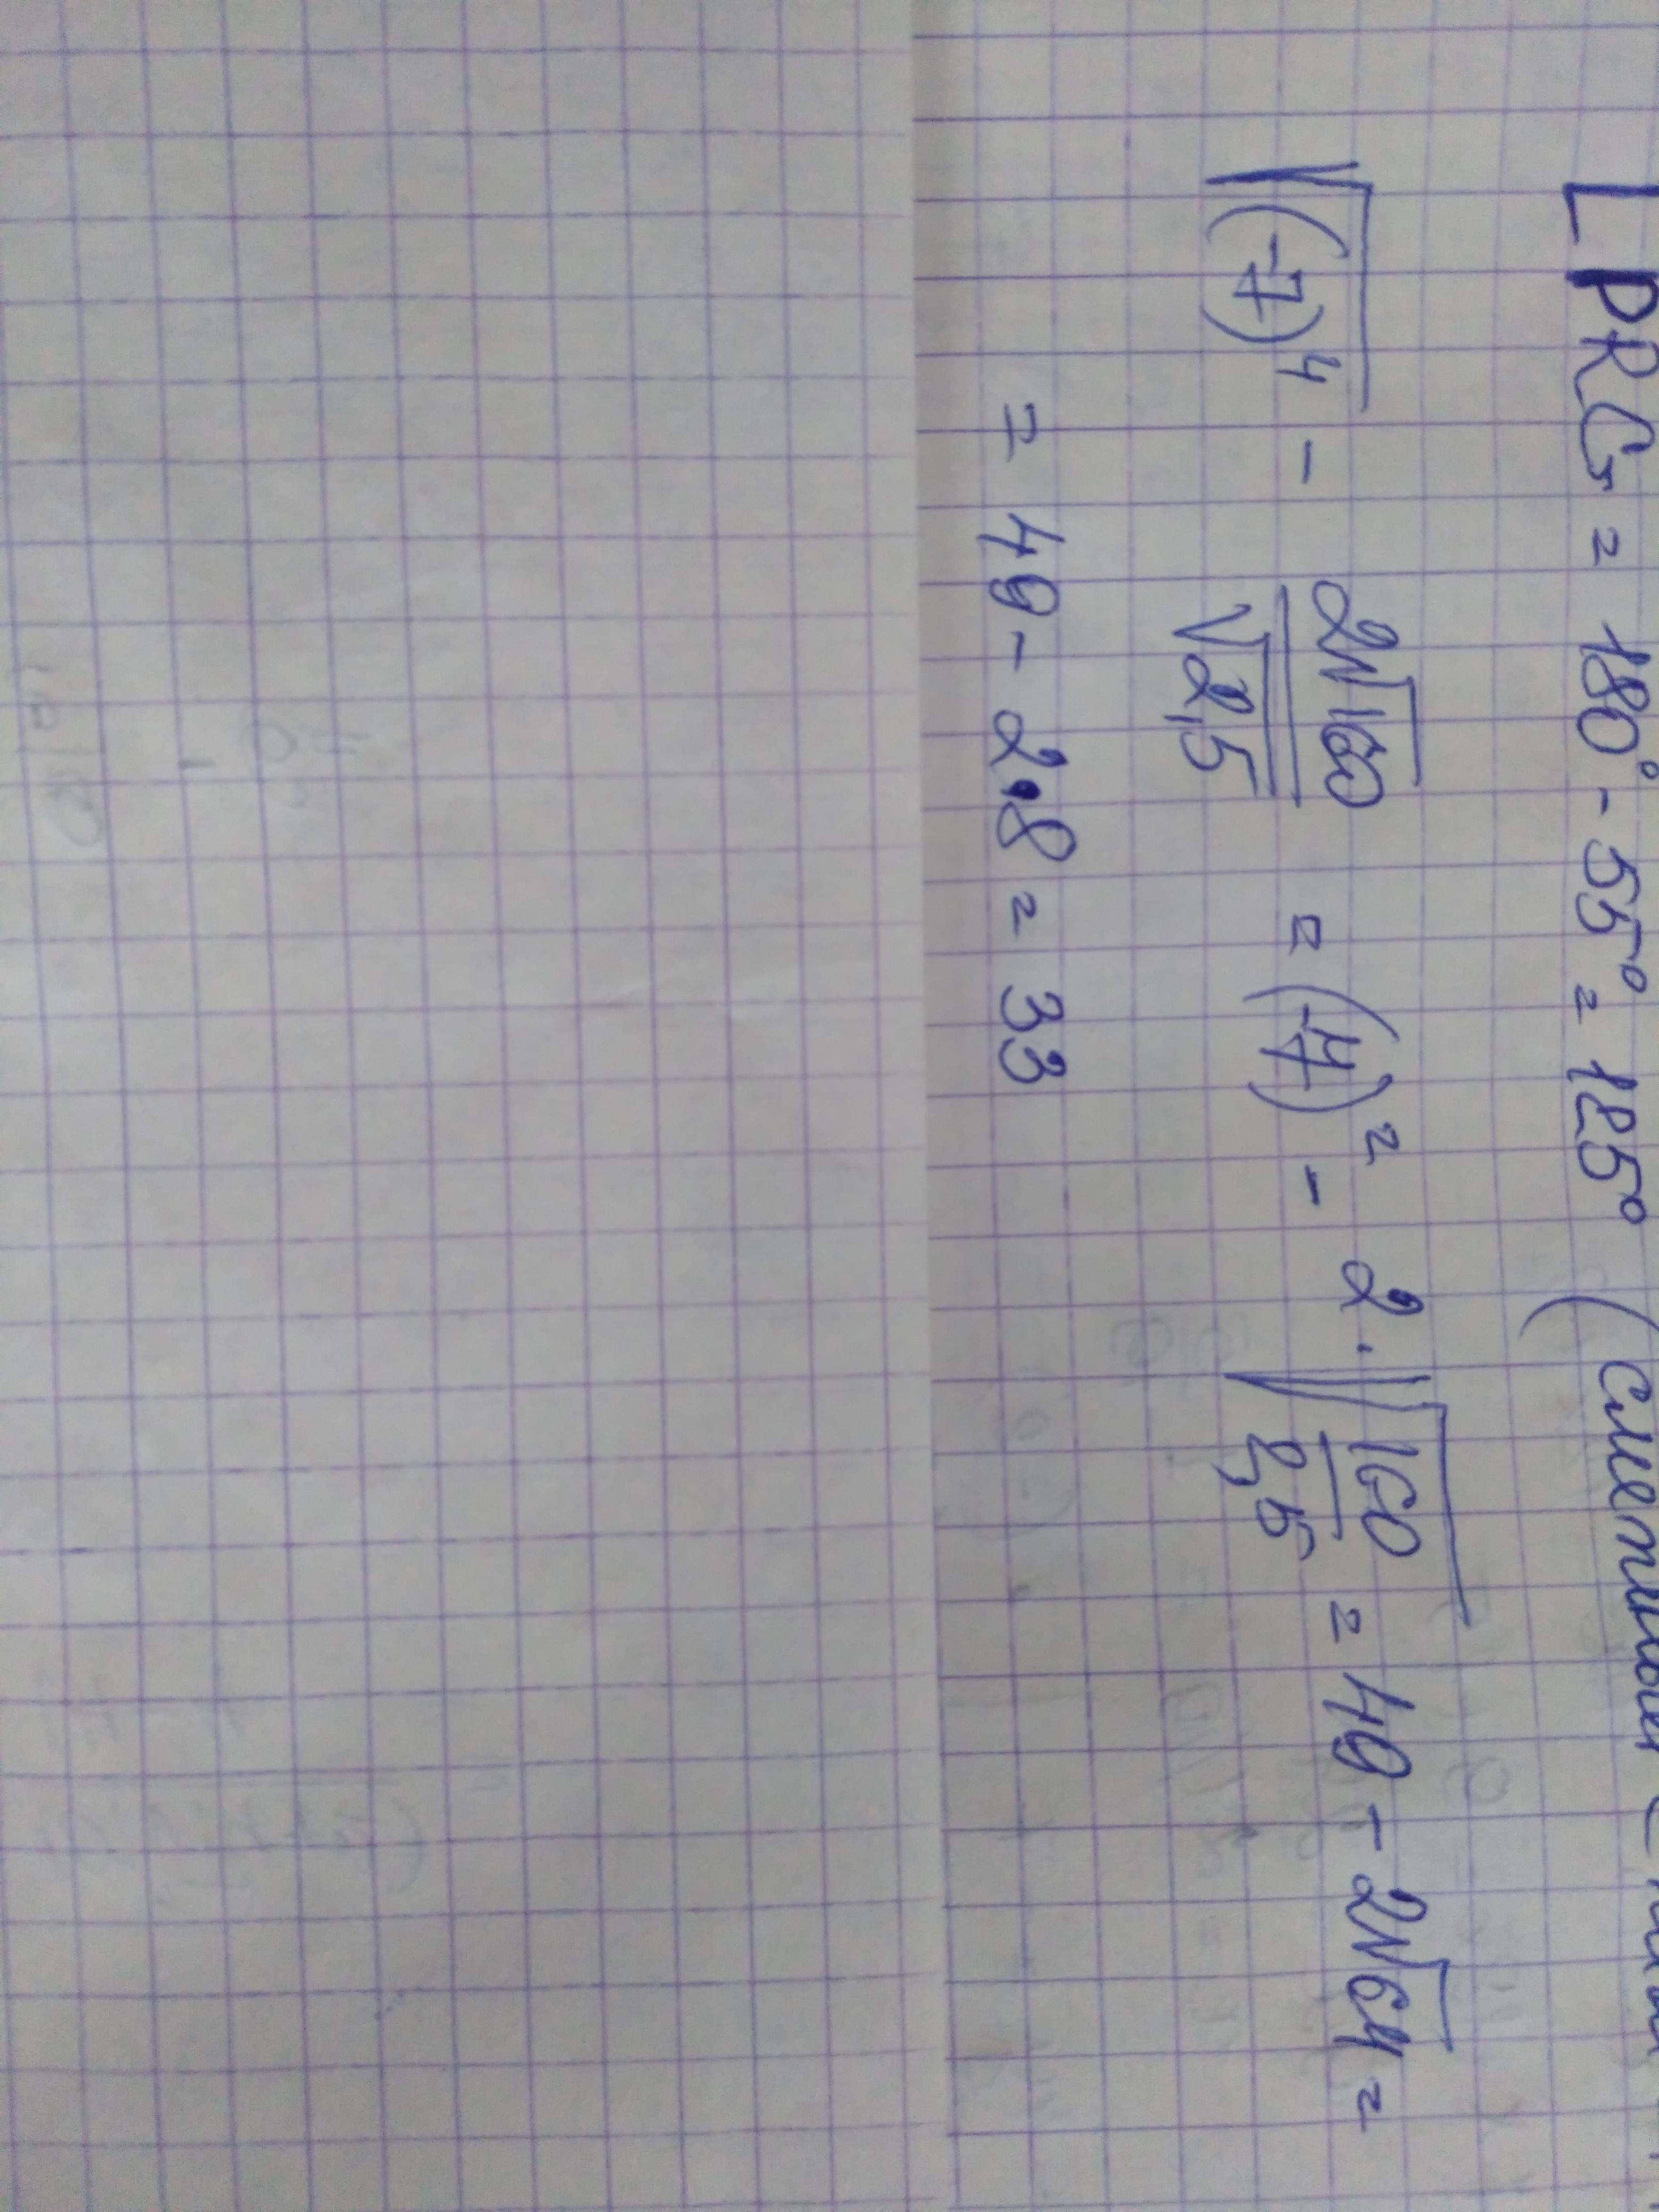 ∟PRG = 180° - 55° = 125° (смежный с
√(-7)⁴ - 2√160 / √2,5 = (-7)² - 2·√(160/2,5) = 49 - 2√64 =
= 49 - 2·8 = 33